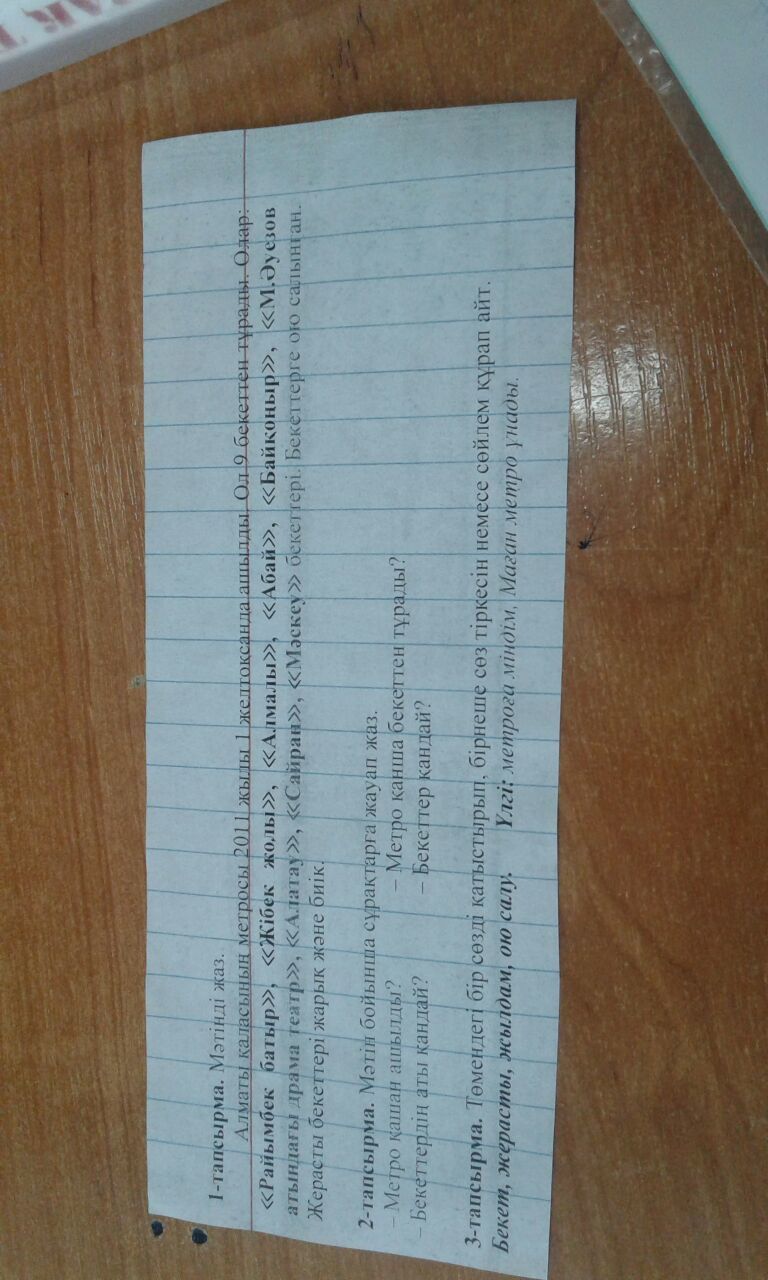 1-тапсырма. Мәтінді жаз.
Алматы қаласының метросы 2011 жылы 1 желтоқсанда ашылды. Ол 9 бекеттен тұрады. Олар:
«Райымбек батыр», «Жібек жолы», «Алмалы», «Абай», «Байқоныр», «М.Әуезов
атындағы драма театр», «Алатау», «Сайран», «Мәскеу» бекеттері. Бекеттерге ою салынған.
Жерасты бекеттері жарық және биік.
2-тапсырма. Мәтін бойынша сұрақтарға жауап жаз.
– Метро қашан ашылды? – Метро қанша бекеттен тұрады?
– Бекеттердің аты қандай? – Бекеттер қандай?
3-тапсырма. Төмендегі бір сөзді қатыстырып, бірнеше сөз тіркесін немесе сөйлем құрап айт.
Бекет, жерасты, жылдам, ою салу. Үлгі: метроға міндім, Маған метро ұнады.